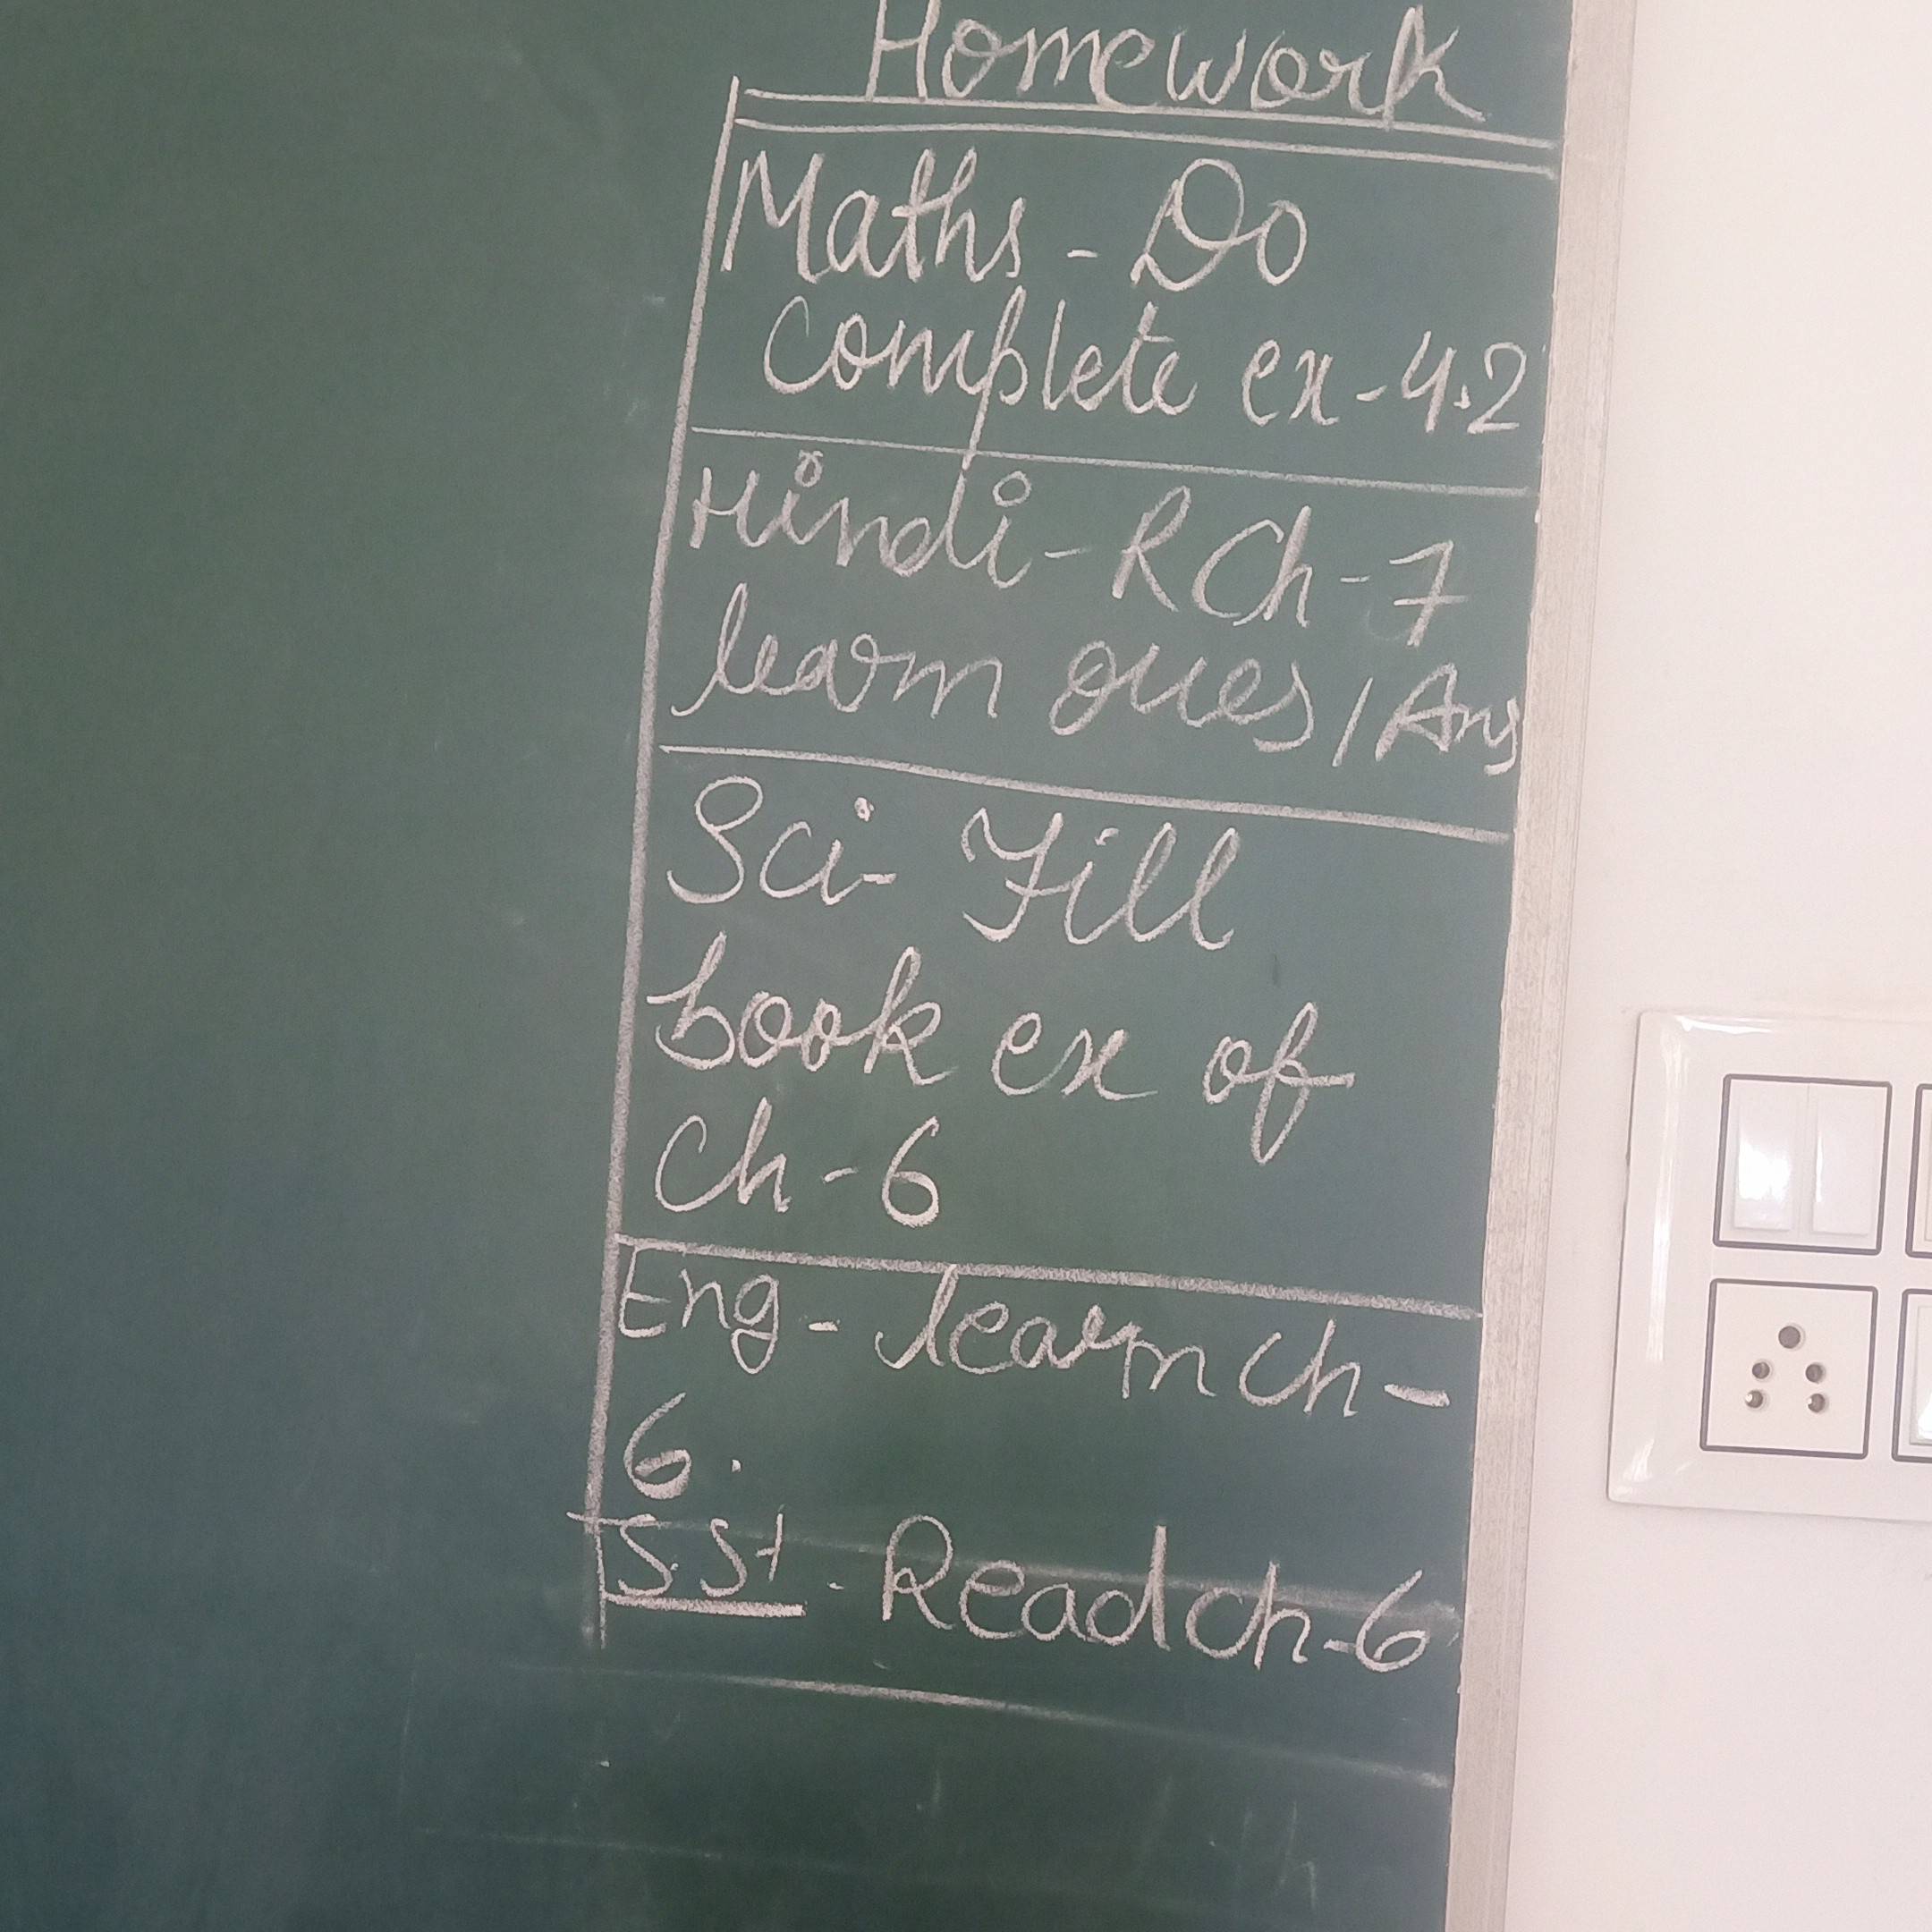 Homework
Maths - Do
Complete ex-4.2
Hindi - R Ch-7
learn ques/Ans
Sci- Fill
book ex of
Ch-6
Eng - learn Ch-
6.
S.St - Read Ch-6